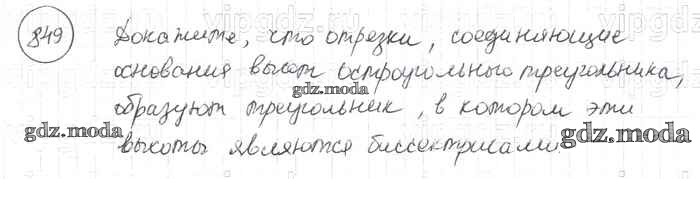 vipgdz vipgdz vipgdz
849 Докажите, что отрезки, соединяющие
основания высот остроугольного треугольника,
gdz.moda
образуют треугольник, в котором эти
gdz.moda gdz.moda
высоты являются биссектрисами.